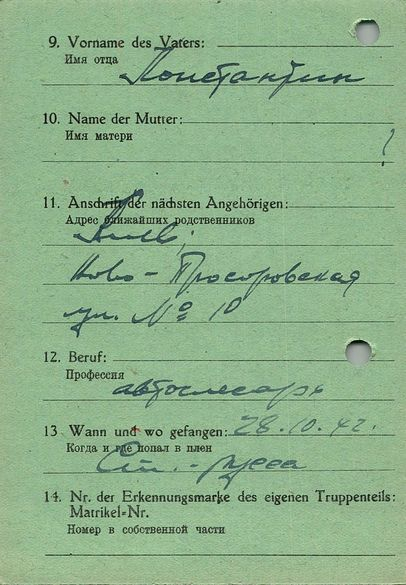 9. Vorname des Vaters:
Имя отца
Константин
10. Name der Mutter:
Имя матери
11. Anschrift der nächsten Angehörigen:
Адрес ближайших родственников
Киев,
Ново-Просоровская
ул. № 10
12. Beruf:
Профессия
автослесарь
13 Wann und wo gefangen: 28.10.42.
Когда и где попал в плен
Ст.-русса
14. Nr. der Erkennungsmarke des eigenen Truppenteils:
Matrikel=Nr.
Номер в собственной части